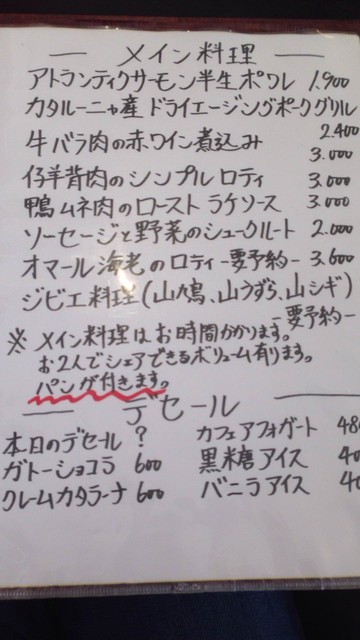 メイン料理
アトランティクサーモン半生ポワレ 1.900
カタルーニャ産 ドライエージングポークグリル
2.400
牛バラ肉の赤ワイン煮込み
3.000
仔羊背肉のシンプル ロティ 3.000
鴨ムネ肉のロースト ラケソース 3.000
ソーセージと野菜のシュークルート 2.000
オマール海老のロティ -要予約- 3.600
ジビエ料理(山鳩、山うずら、山シギ)
-要予約-
※ メイン料理はお時間かかります。
お2人でシェアできるボリューム有ります。
パンが付きます。
デセール
本日のデセール ?
ガトーショコラ 600
クレームカタラーナ 600
カフェアフォガート 48
黒糖アイス 40
バニラアイス 40